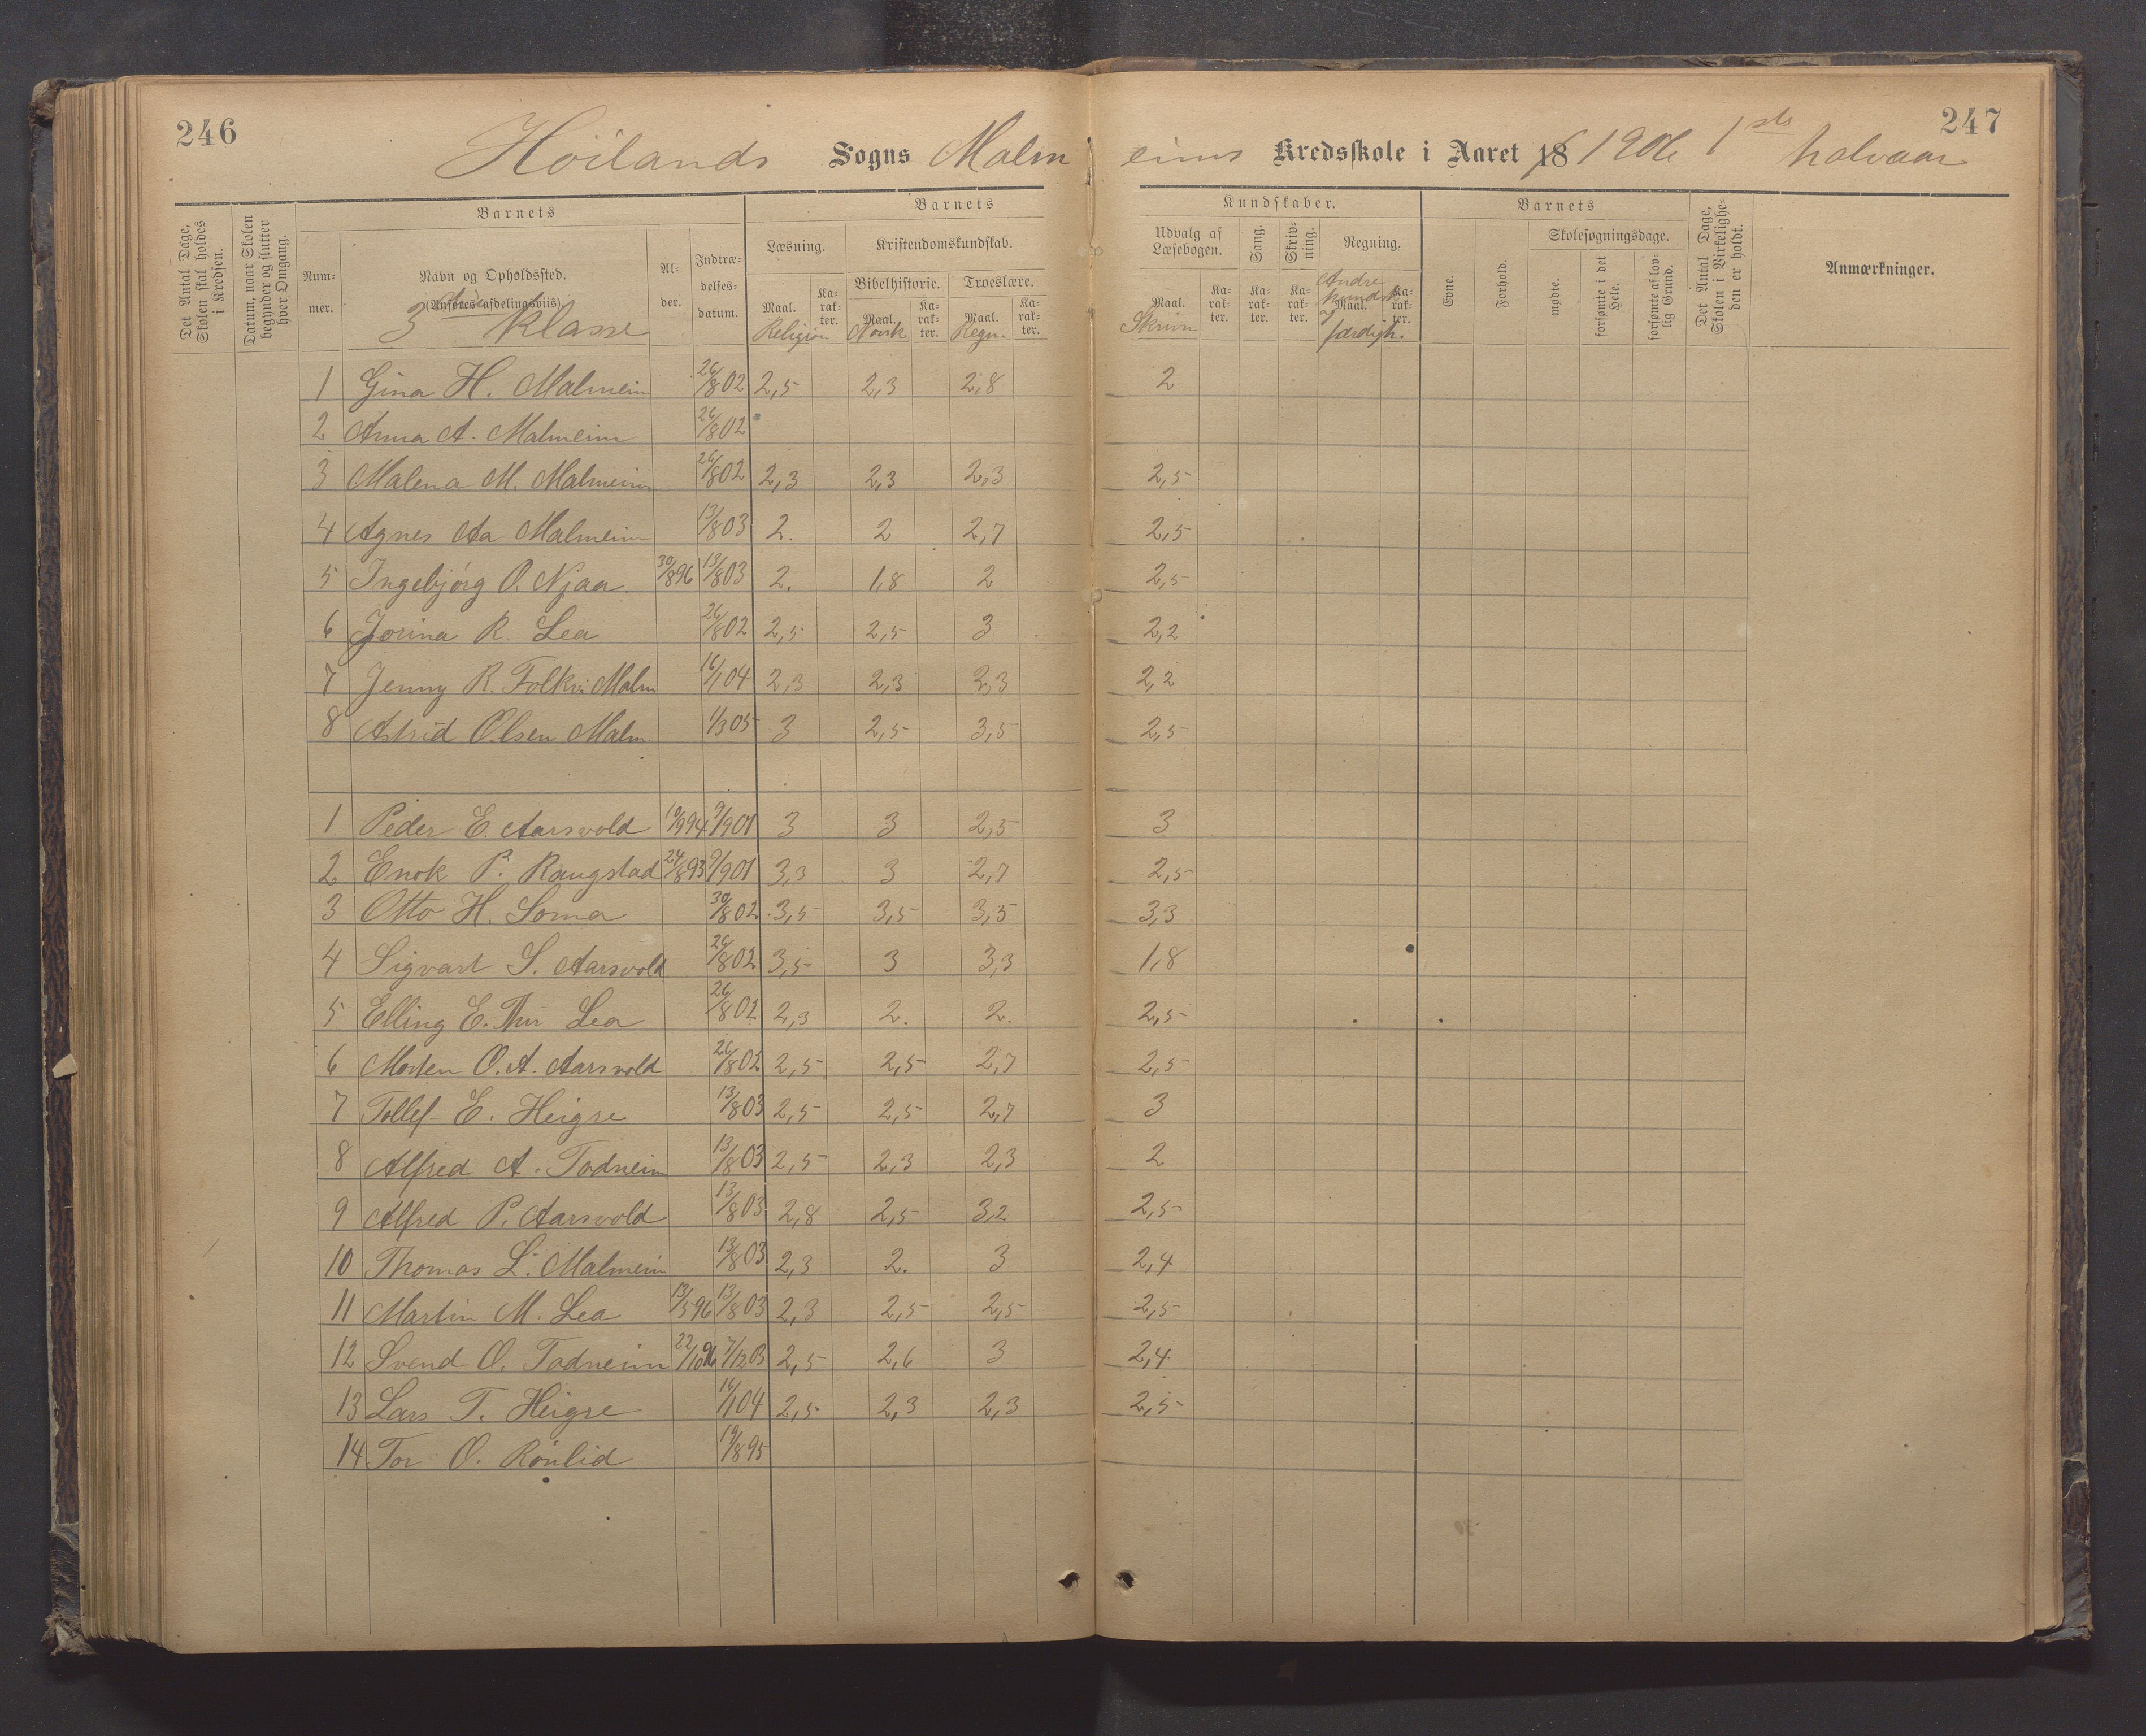 246
247
Höilands Sogns Malmeims Kredsskole i Aaret 18 1906 1ste halvaar
Det Antal Dage, Skolen skal holdes i Kredsen.
Datum, naar Skolen begynder og slutter hver Omgang.
Barnets
Barnets
Kundskaber.
Barnets
Det Antal Dage, Skolen i Virkeligheden er holdt.
Anmærkninger.
Nummer.
Navn og Opholdssted.
(Anføres afdelingsviis).
3die klasse
Alder.
Indtrædelsesdatum.
Læsning.
Kristendomskundskab.
Bibelhistorie.
Troeslære.
Udvalg af Læsebogen.
Sang.
Skrivning.
Regning.
Evne.
Forhold.
Skolesøgningsdage.
mødte.
forsømte i det Hele.
forsømte af lovlig Grund.
Maal. Karakter. Maal. Karakter. Maal. Karakter. Maal. Karakter. Karakter. Karakter. Maal. Karakter.
Religion Norsk Regn. Skrivn Andre kundsk. og færdigh.
1 Gina H. Malmeim 26/8 02 2,5 2,3 2,8 2
2 Anna A. Malmeim 26/8 02
3 Malena M. Malmeim 26/8 02 2,3 2,3 2,3 2,5
4 Agnes Aa Malmeim 13/8 03 2. 2 2,7 2,5
5 Ingebjørg O. Njaa 30/8 96 13/8 03 2. 1,8 2 2,5
6 Jorina R. Lea 26/8 02 2,5 2,5 3 2,2
7 Jenny R. Folkv. Malm 16/1 04 2,3 2,3 2,3 2,2
8 Astrid Olsen Malm 1/3 05 3 2,5 3,5 2,5
1 Peder E. Aarsvold 10/9 94 9/9 01 3 3 2,5 3
2 Enok P. Raugstad 24/8 93 9/9 01 3,3 3 2,7 2,5
3 Otto H. Soma 30/8 02 3,5 3,5 3,5 3,3
4 Sigvart S. Aarsvold 26/8 02 3,5 3 3,3 1,8
5 Elling E. Lea 26/8 02 2,3 2. 2. 2,5
6 Morten O. A. Aarsvold 26/8 02 2,5 2,5 2,7 2,5
7 Tollef E. Heigre 13/8 03 2,5 2,5 2,7 3
8 Alfred A. Todneim 13/8 03 2,5 2,3 2,3 2
9 Alfred P. Aarsvold 13/8 03 2,8 2,5 3,2 2,5
10 Thomas L. Malmeim 13/8 03 2,3 2. 3 2,4
11 Martin M. Lea 13/5 96 13/8 03 2,3 2,5 2,5 2,5
12 Svend O. Todneim 22/10 96 7/12 03 2,5 2,6 3 2,4
13 Lars T. Heigre 16/1 04 2,5 2,3 2,3 2,5
14 Tor O. Rönlid 19/8 95